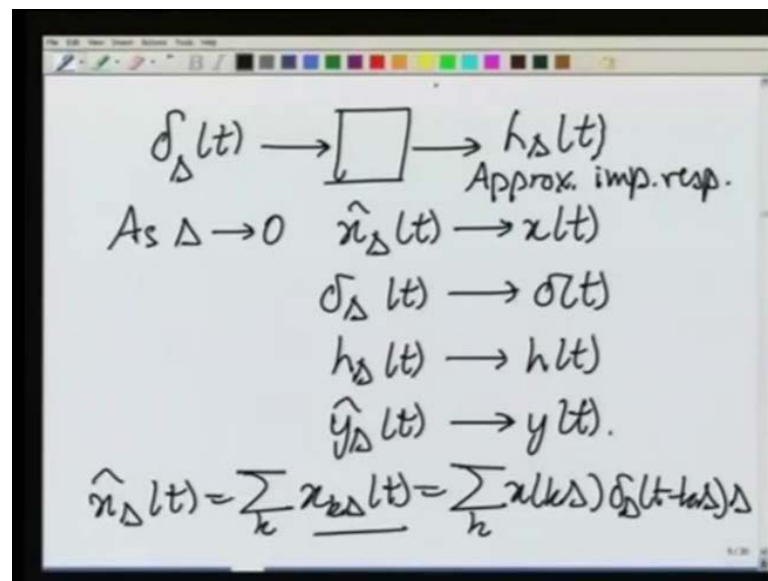 δ_Δ(t) → □ → h_Δ(t)
Approx. imp. resp.
As Δ → 0 x̂_Δ(t) → x(t)
δ_Δ(t) → δ(t)
h_Δ(t) → h(t)
ŷ_Δ(t) → y(t).
x̂_Δ(t) = Σ_k x_{kΔ}(t) = Σ_k x(kΔ) δ_Δ(t-kΔ)Δ